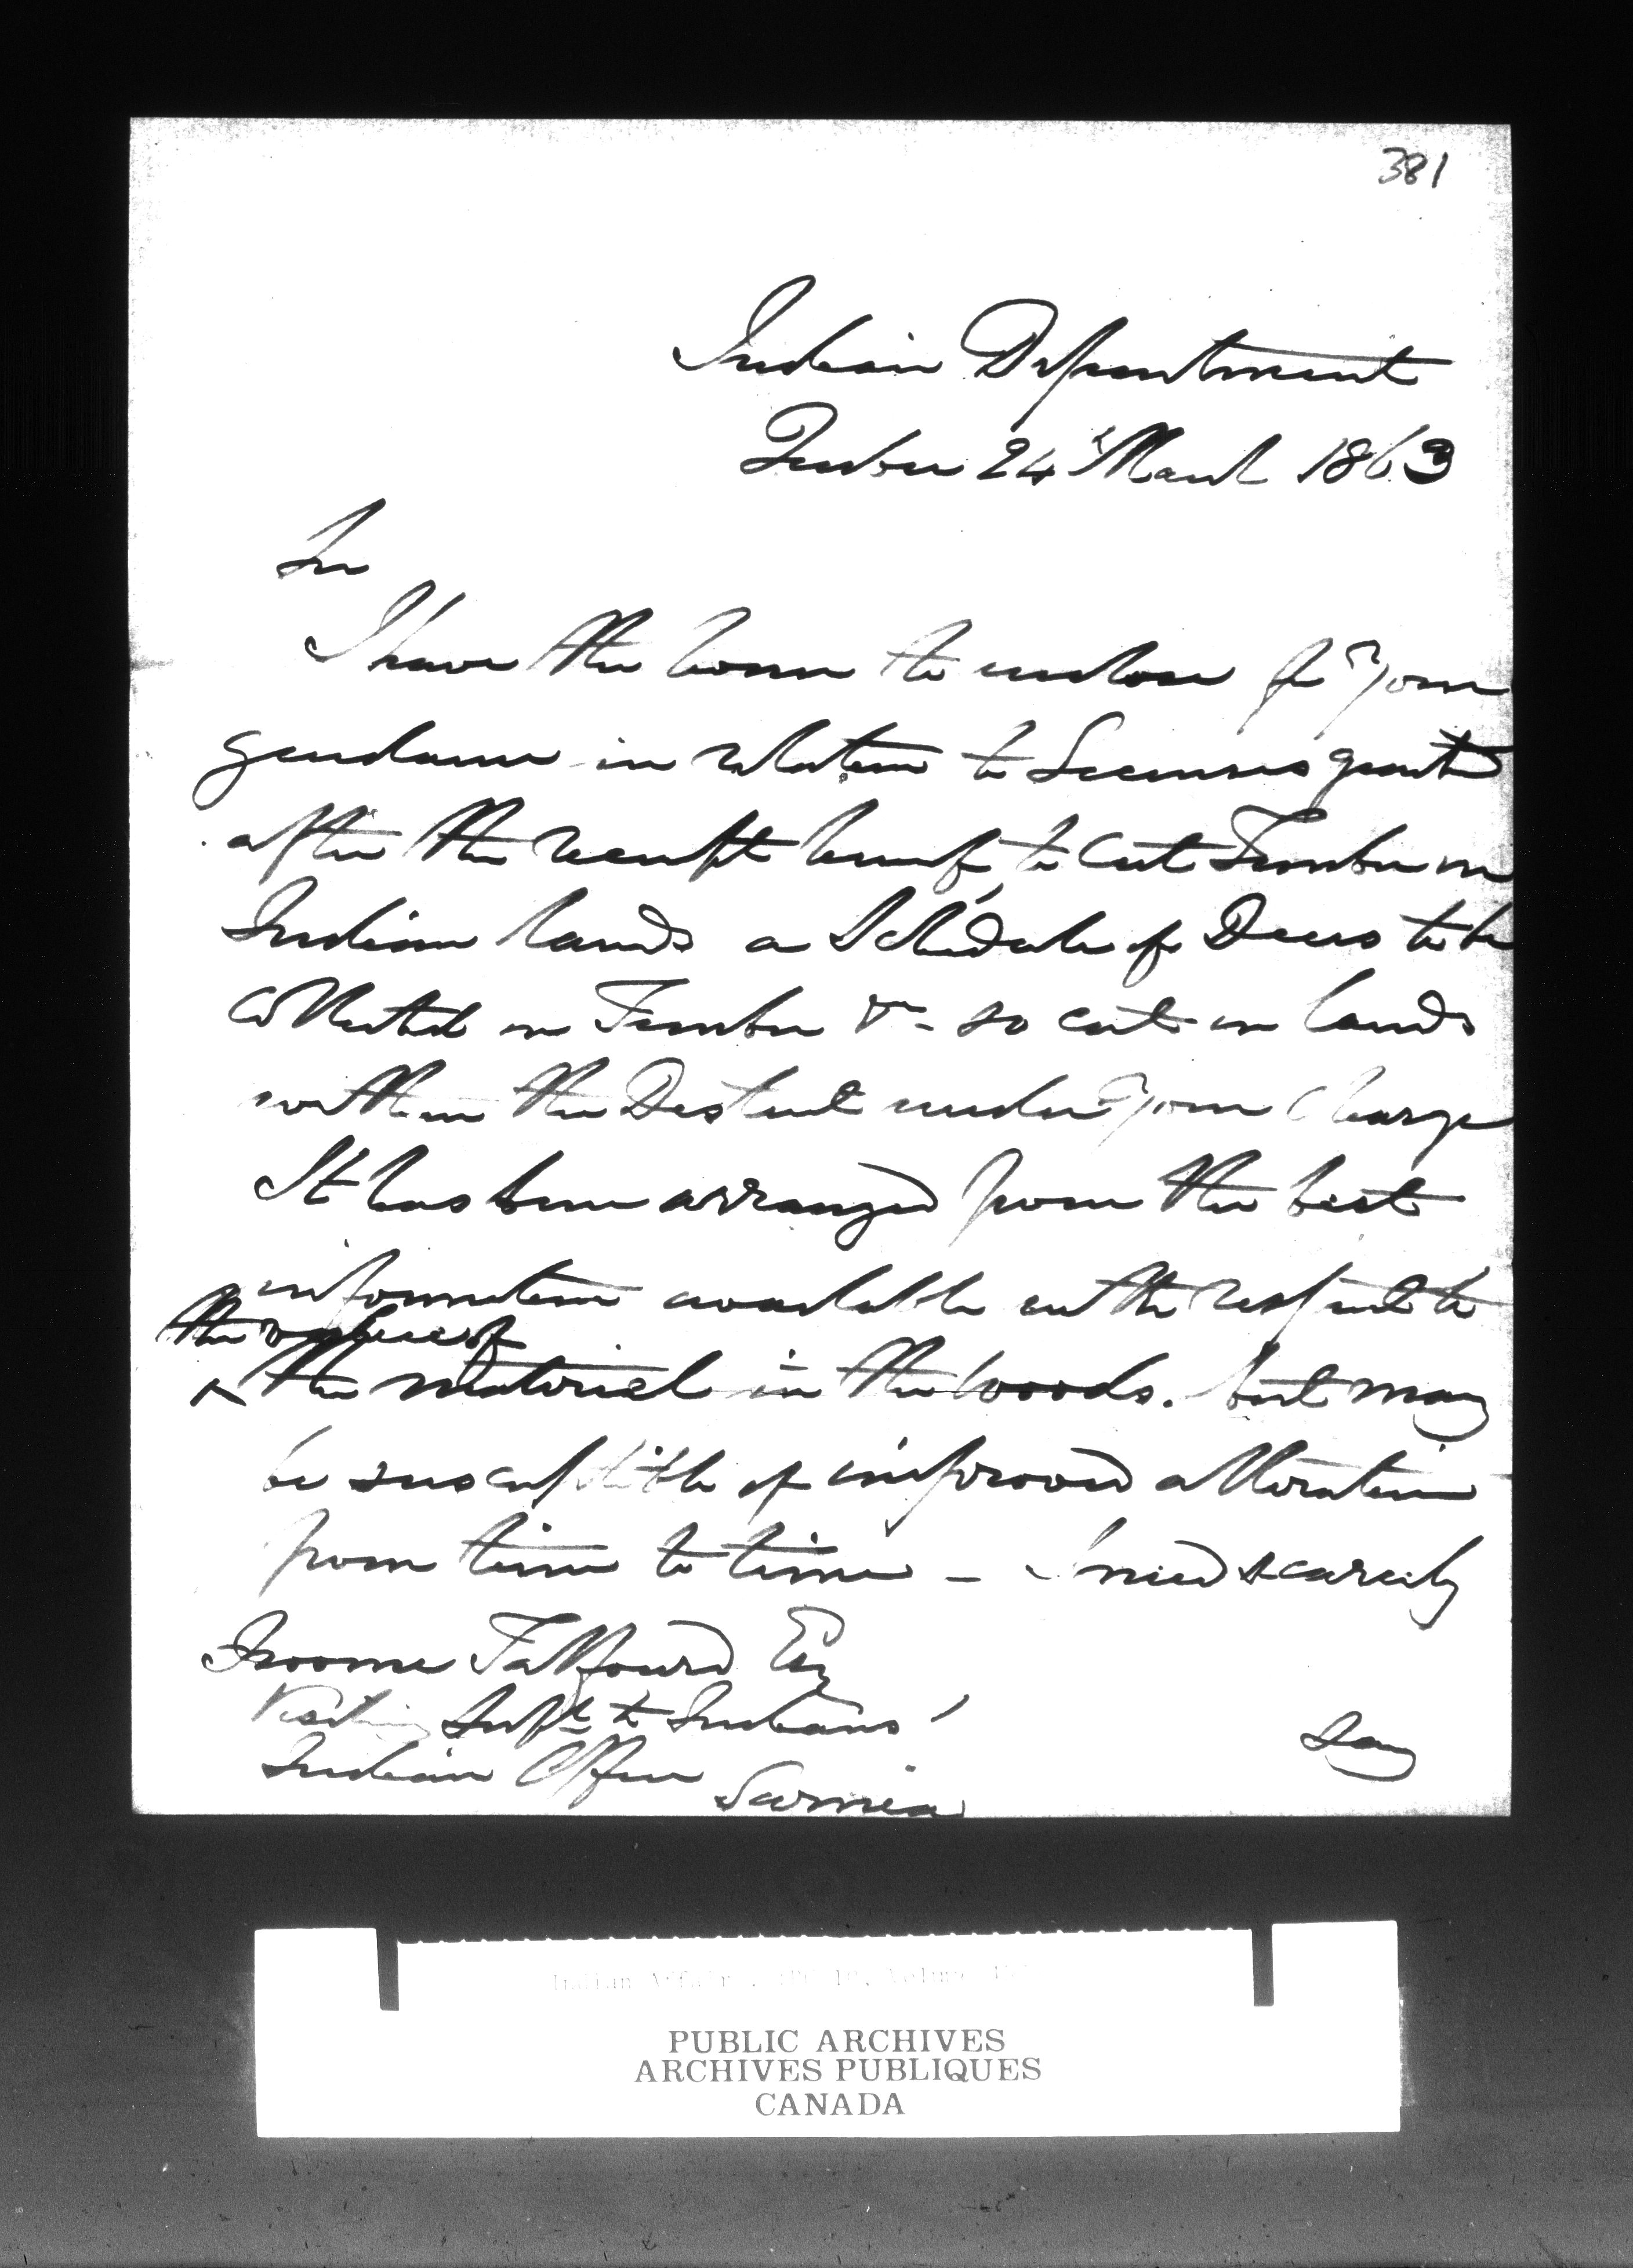 381
Indian Department
Quebec 24 March 1863
Sir
I have the honor to enclose for your
guidance in relation to Licenses granted
after the receipt hereof, to cut Timber on
Indian lands a Schedule of Dues to be
collected on Timber &c - so cut on lands
within the District under your charge
It has been arranged from the best
information available with respect to
the value of
^ the material in the woods. but may
be susceptible of improved alteration
from time to time - I need scarcely
Froome Talfourd Esq
Visiting Supt to Indians
Indian Office
Sarnia
say
Indian Affairs. RG 10, Volume
PUBLIC ARCHIVES
ARCHIVES PUBLIQUES
CANADA